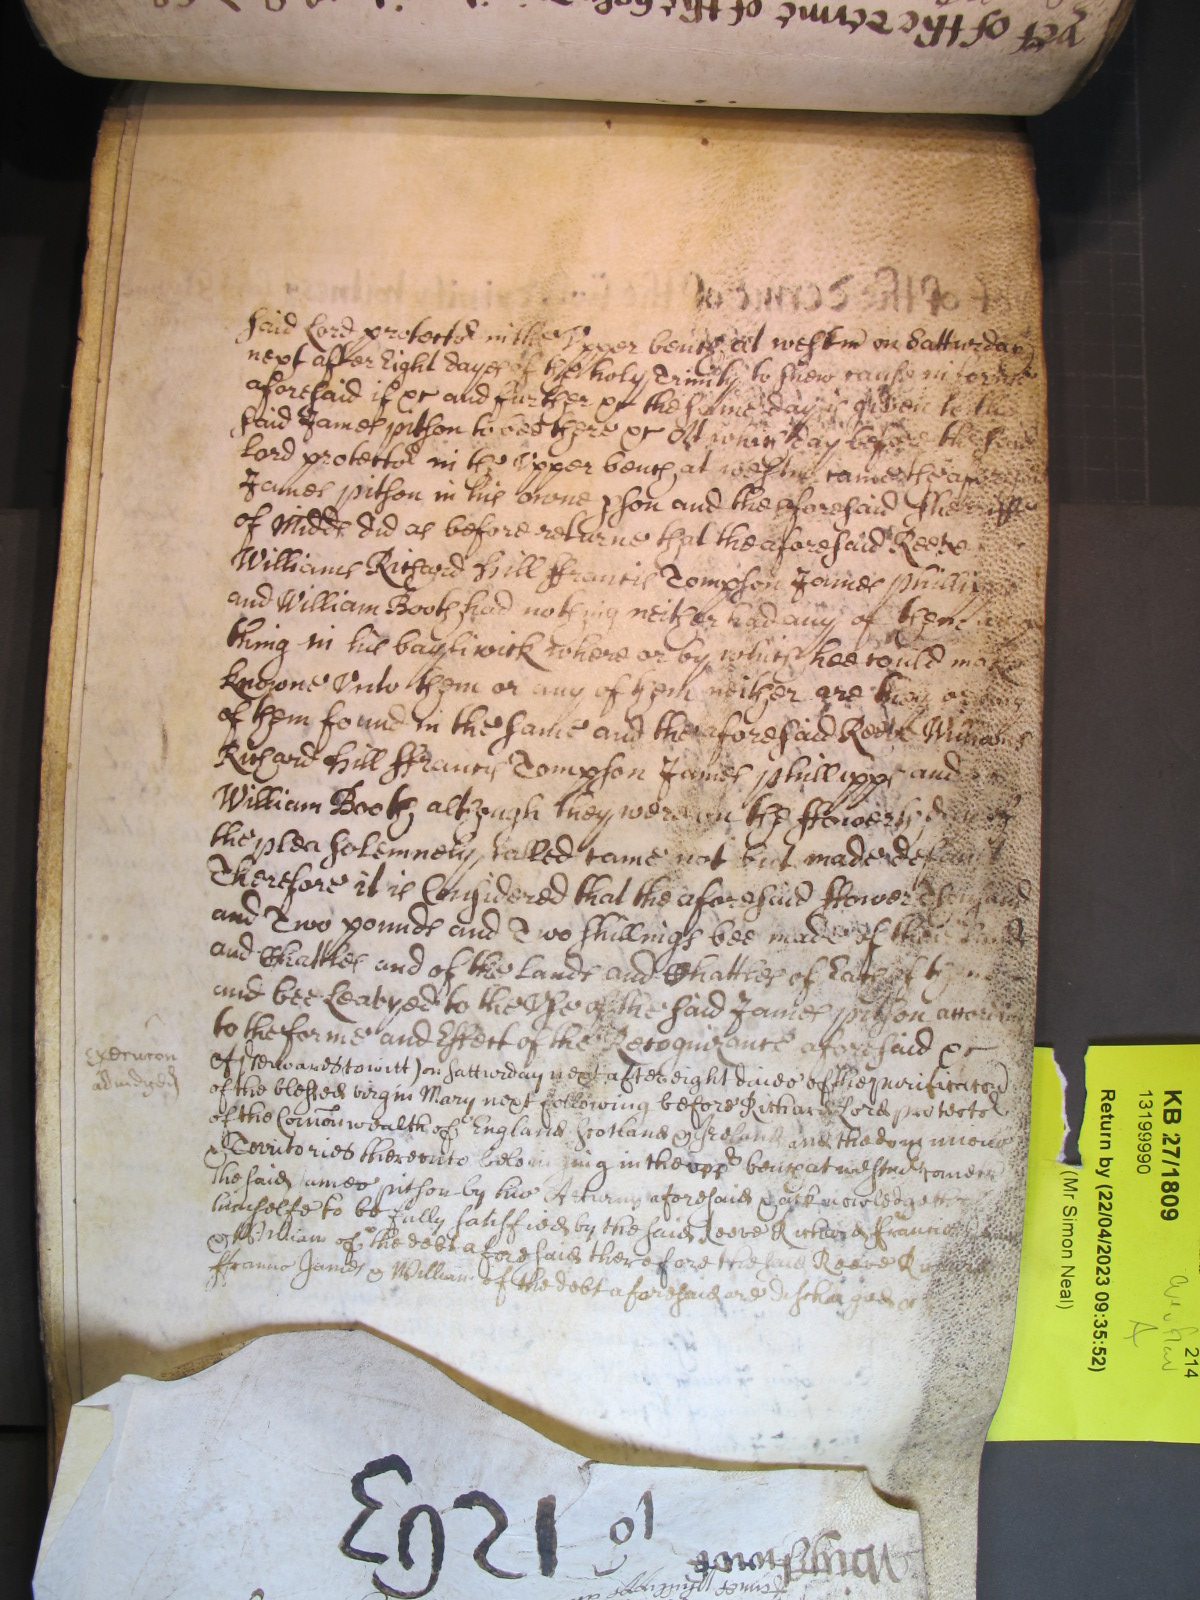 said Lord protector in the Upper bench at westm on Satturday
next after Eight dayes of the holy Trinity to shew cause in forme
aforesaid if &c and further &c the same day is given to the
said James pitson to bee there &c At which day before the said
Lord protector in the Upper bench at westm came the aforesaid
James pitson in his owne pson and the aforesaid Sheriffe
of Midds did as before returne that the aforesaid Reeve
Williams Richard Hill ffrancis Tompson James phillipps
and William Booth had nothing neither had any of them any
thing in his bayliwick where or by which hee could make
knowne Unto them or any of them neither are they or any
of them found in the same and the aforesaid Reeve Williams
Richard Hill ffrancis Tompson James phillipps and
William Booth although they were on the ffowerth day of
the plea solemnely called came not but made default
Therefore it is Considered that the aforesaid ffower Thousand
and Two pounds and Two shillings bee made of their Lands
and Chattles and of the Lands and Chattles of Each of them
and bee Leavyed to the Use of the said James pitson according
to the forme and Effect of the Recognizance aforesaid &c
Afterwards to witt) on Satturday next after eight daies of the purificacon
of the blessed virgin Mary next following before Richard Lord protector
of the Comonwealth of England Scotland & Ireland and the dominions
& Territories thereunto belonging in the upp bench at westm cometh
the said James pitson by his Atturny aforesaid & acknowledgeth
himselfe to be fully satisfied by the said Reeve Richard ffrancis
& William of the debt aforesaid therefore the said Reeve Richard
ffrancis James & William of the debt aforesaid are discharged &c
execucon
adiudged
KB 27/1809
13199990
Return by (22/04/2023 09:35:52)
(Mr Simon Neal)
214
A
ro 1203